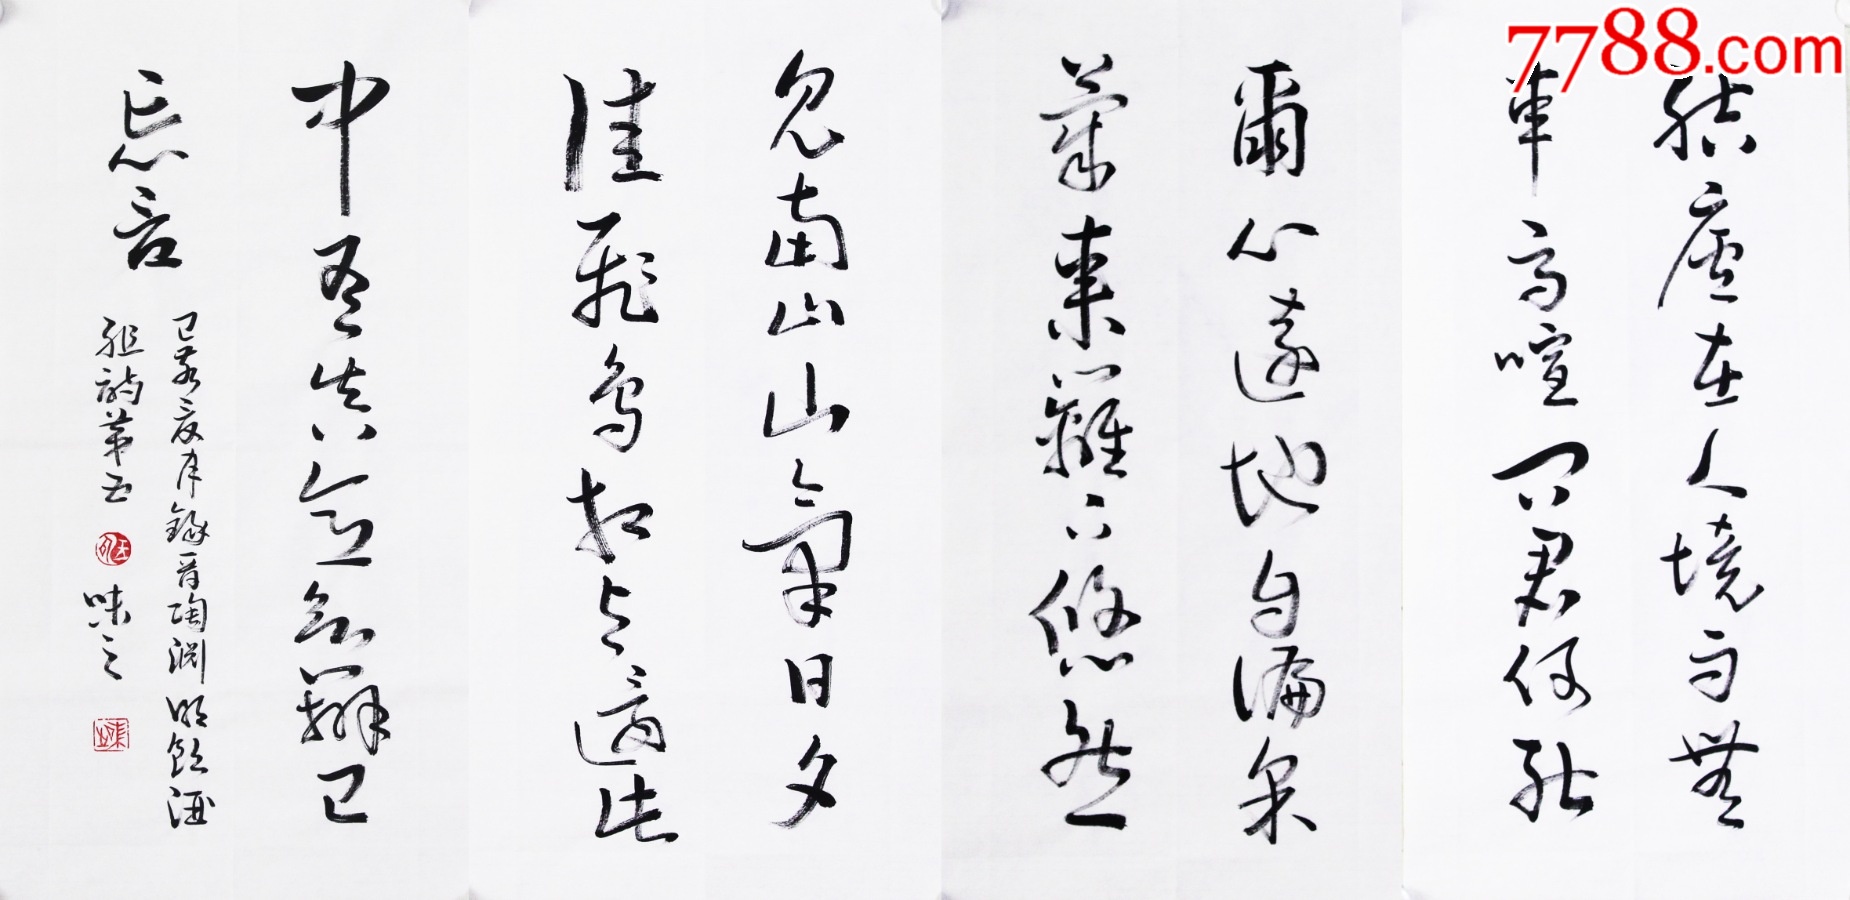 7788.com
結廬在人境而無
車馬喧問君何能
爾心遠地自偏采
菊東籬下悠然
見南山山氣日夕
佳飛鳥相與還此
中有真意欲辯已
忘言
己亥夏月錄晉陶淵明飲酒
組詩第五 味之